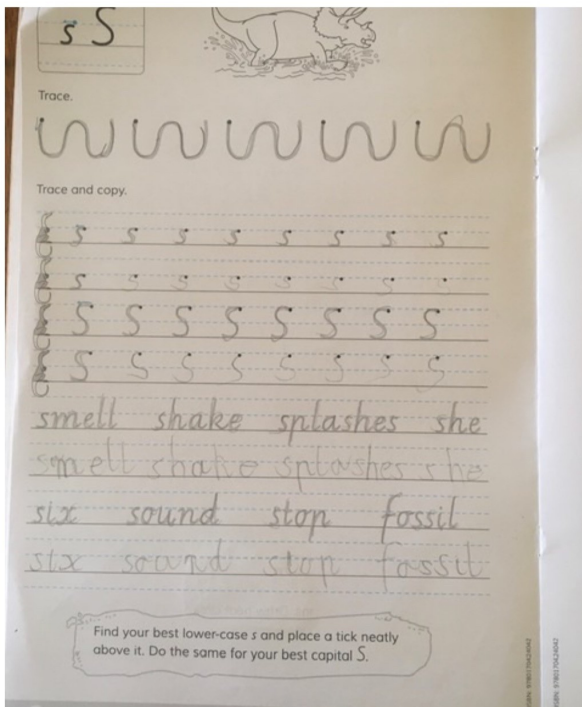 s S
Trace.
Trace and copy.
s s s s s s s s
s s s s s s s
S S S S S S S S
S S S S S S S S
smell shake splashes she
smell shake splashes she
six sound stop fossil
six sound stop fossil
Find your best lower-case s and place a tick neatly
above it. Do the same for your best capital S.
ISBN: 9780170424042
ISBN: 9780170424042